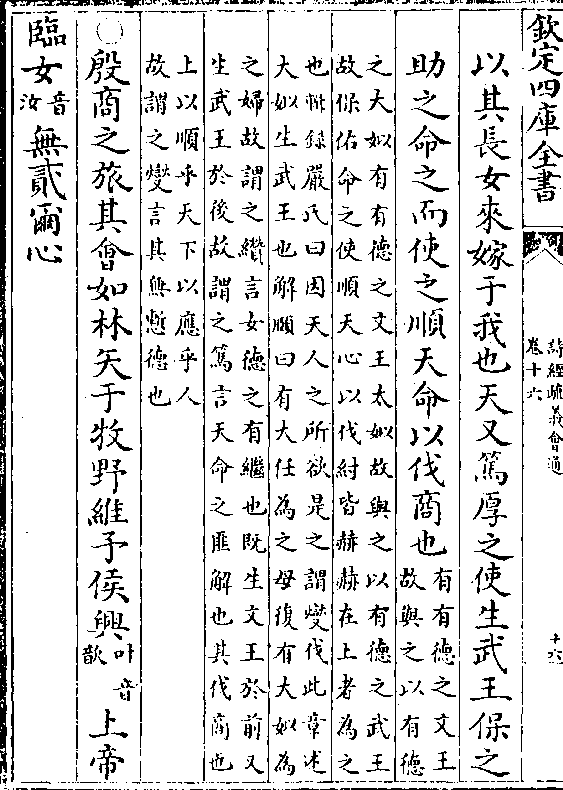 欽定四庫全書
詩經疏義會通
卷十六
十六
以其長女來嫁于我也天又篤厚之使生武王保之
助之命之而使之順天命以伐商也有有德之文王
故與之以有德
之大姒有有德之文王太姒故與之以有德之武王
故保佑命之使順天心以伐紂皆赫赫在上者為之
也輯録嚴氏曰因天人之所欲是之謂燮伐此章述
大姒生武王也解頤曰有大任為之母復有大姒為
之婦故謂之纘言女德之有繼也既生文王於前又
生武王於後故謂之篤言天命之匪解也其伐商也
上以順乎天下以應乎人
故謂之燮言其無慙德也
○殷商之旅其會如林矢于牧野維予侯興叶音歆上帝
臨女音汝無貳爾心